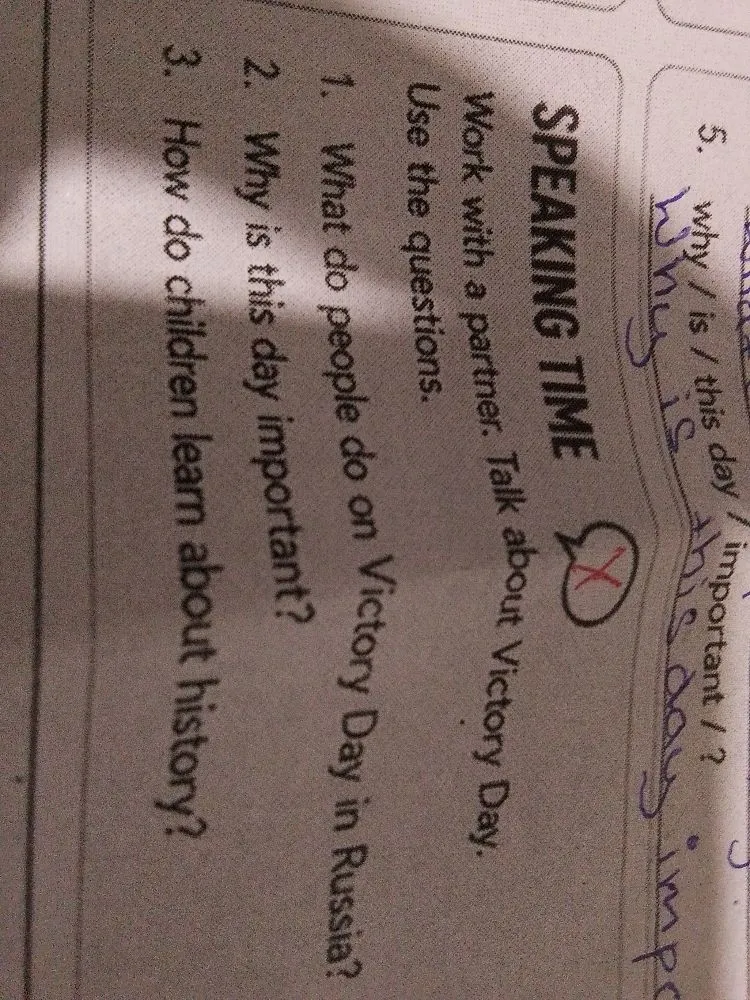 5. why / is / this day / important / ?
Why is this day impo
SPEAKING TIME
Work with a partner. Talk about Victory Day.
Use the questions.
1. What do people do on Victory Day in Russia?
2. Why is this day important?
3. How do children learn about history?